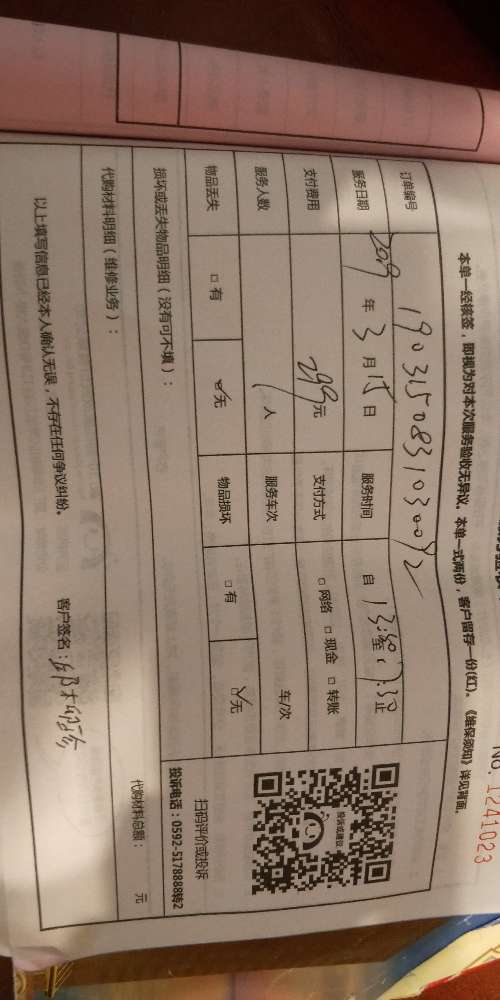 No. 1241023
本单一经核签，即视为对本次服务验收无异议。本单一式两份，客户留存一份(红)。《维保须知》详见背面。
订单编号 190315083103008
服务日期 2019 年 3 月 15 日 服务时间 自 13:30 至 17:30 止
支付费用 299 元 支付方式 □ 网络 □ 现金 □ 转账
服务人数 1 人 服务车次 车/次
物品丢失 □ 有 ☑ 无 物品损坏 □ 有 ☑ 无
损坏或丢失物品明细（没有可不填）：
代购材料明细（维修业务）： 代购材料总额： 元
投诉或建议
扫码评价或投诉
投诉电话：0592-5178888转2
以上填写信息已经本人确认无误，不存在任何争议纠纷。 客户签名：